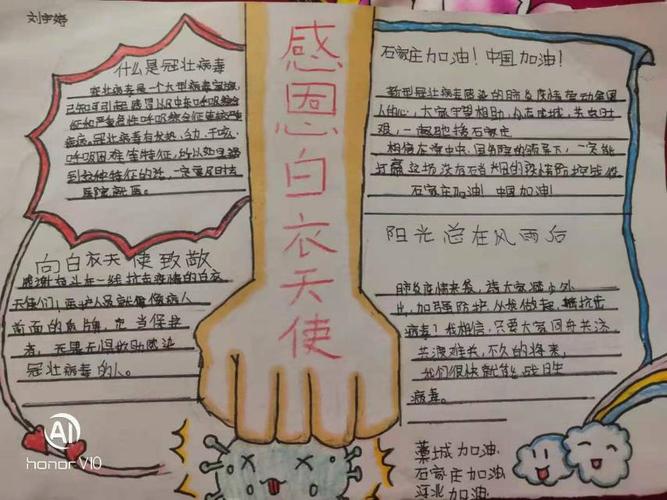 刘宇婷
感恩白衣天使
什么是冠壮病毒
冠壮病毒是一个大型病毒家族,
已知可引起感冒以及中东呼吸综合
征和严重急性呼吸综合征等较严重
疾病。冠壮病毒有发热、乏力、干咳、
呼吸困难等特征,所以如果遇
到这种特征的话,一定要及时去
医院就医。
向白衣天使致敬
感谢奋斗在一线抗击疫情的白衣
天使们,医护人员就像像病人
前面的盾牌,充当保护
者,无畏无惧救助感染
冠壮病毒的人。
石家庄加油!中国加油!
新型冠壮病毒感染的肺炎疫情牵动全国
人的心,大家守望相助,众志成城,共克时
艰,一起驰援石家庄
相信在党中央、国务院的领导下,一定能
打赢这场没有硝烟的疫情防控战役
石家庄加油!中国加油!
阳光总在风雨后
肺炎疫情来袭,请大家减少外
出,加强防护,从我做起,抵抗
病毒!我相信,只要大家同舟共济,
共渡难关,不久的将来,
我们很快就能战胜
病毒。
藁城加油
石家庄加油
河北加油
AI
honor V10